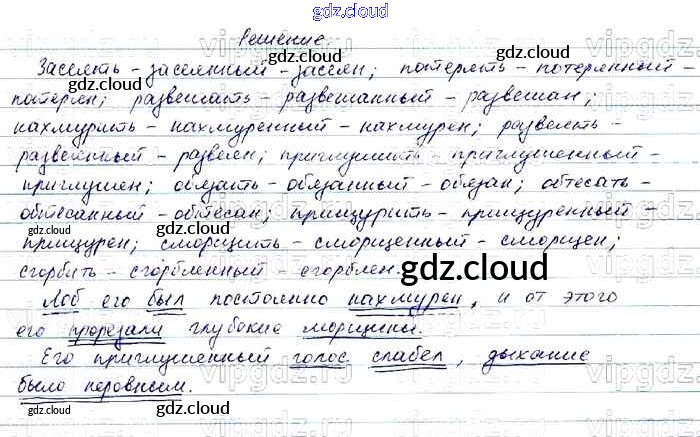 gdz.cloud
Решение
Засеять - засеянный - засеян; потерять - потерянный -
потерян; развешать - развешанный - развешан;
нахмурить - нахмуренный - нахмурен; развеять -
развеянный - развеян; приглушить - приглушенный -
приглушен; обязать - обязанный - обязан; обтесать -
обтесанный - обтесан; прищурить - прищуренный -
прищурен; сморщить - сморщенный - сморщен;
сгорбить - сгорбленный - сгорблен.
Лоб его был постоянно нахмурен, и от этого
его прорезали глубокие морщины.
Его приглушенный голос слабел, дыхание
было неровным.